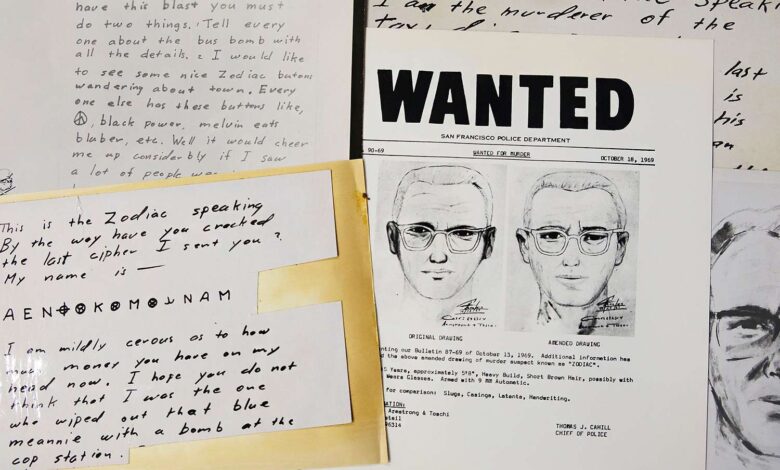 have this blast you must
do two things. Tell every
one about the bus bomb with
all the details. 2 I would like
to see some nice Zodiac butons
wandering about town. Every
one else has these buttons like,
black power, melvin eats
bluber, etc. Well it would cheer
me up considerbly if I saw
a lot of people
This is the Zodiac speaking
By the way have you cracked
the last cipher I sent you?
My name is —
A E N ⊕ ⊗ K ⊗ M ⊗ ⅃ N A M
I am mildly cerous as to how
much money you have on my
head now. I hope you do not
think that I was the one
who wiped out that blue
meannie with a bomb at the
cop station.
I am the murderer of the
last
is
his
WANTED
SAN FRANCISCO POLICE DEPARTMENT
90-69 WANTED FOR MURDER OCTOBER 18, 1969
ORIGINAL DRAWING AMENDED DRAWING
our Bulletin 87-69 of October 13, 1969. Additional information has
the above amended drawing of murder suspect known as "ZODIAC".
Years, approximately 5'8", Heavy Build, Short Brown Hair, possibly with
Wears Glasses. Armed with 9 MM Automatic.
for comparison: Slugs, Casings, Latents, Handwriting.
Armstrong & Toschi
THOMAS J. CAHILL
CHIEF OF POLICE